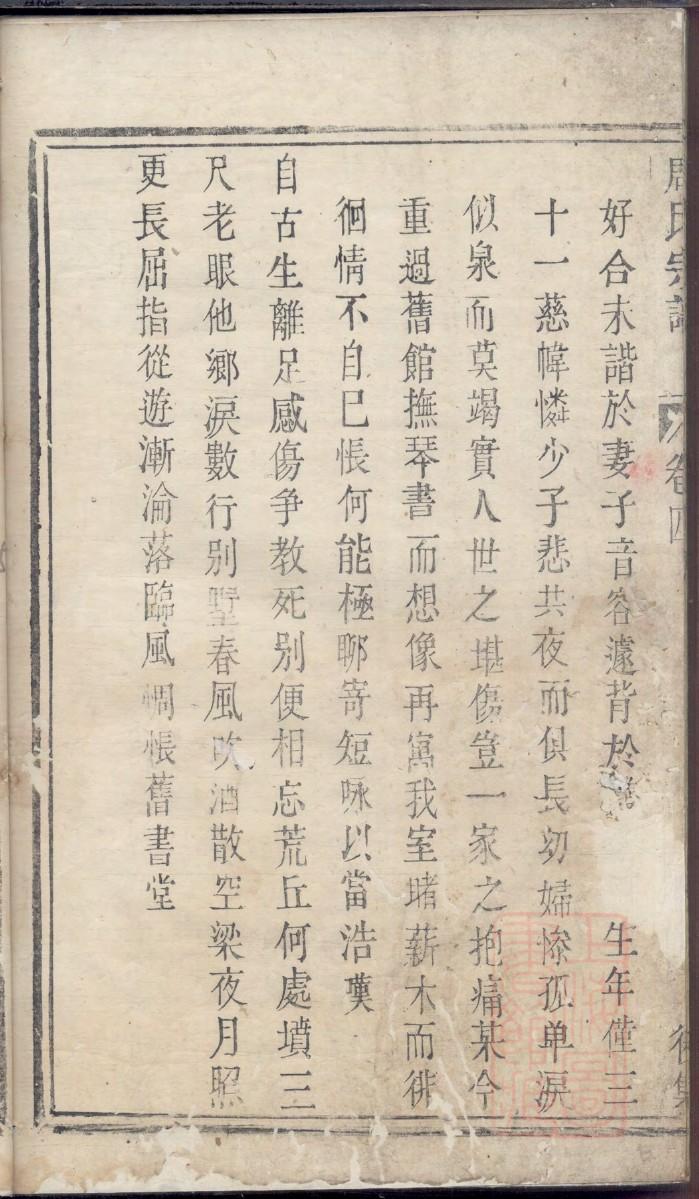 周氏宗譜 卷四
好合未諧於妻子音容遽背於 生年僅三
十一慈幃憐少子悲共夜而俱長幼婦慘孤单淚
似泉而莫竭實人世之堪傷豈一家之抱痛某今
重過舊館撫琴書而想像再寓我室堵薪木而徘
徊情不自巳悵何能極聊寄短咏以當浩嘆
自古生離足感傷争教死別便相忘荒丘何處墳三
尺老眼他鄉淚數行别墅春風吹酒散空梁夜月照
更長屈指從遊漸淪落臨風惆悵舊書堂